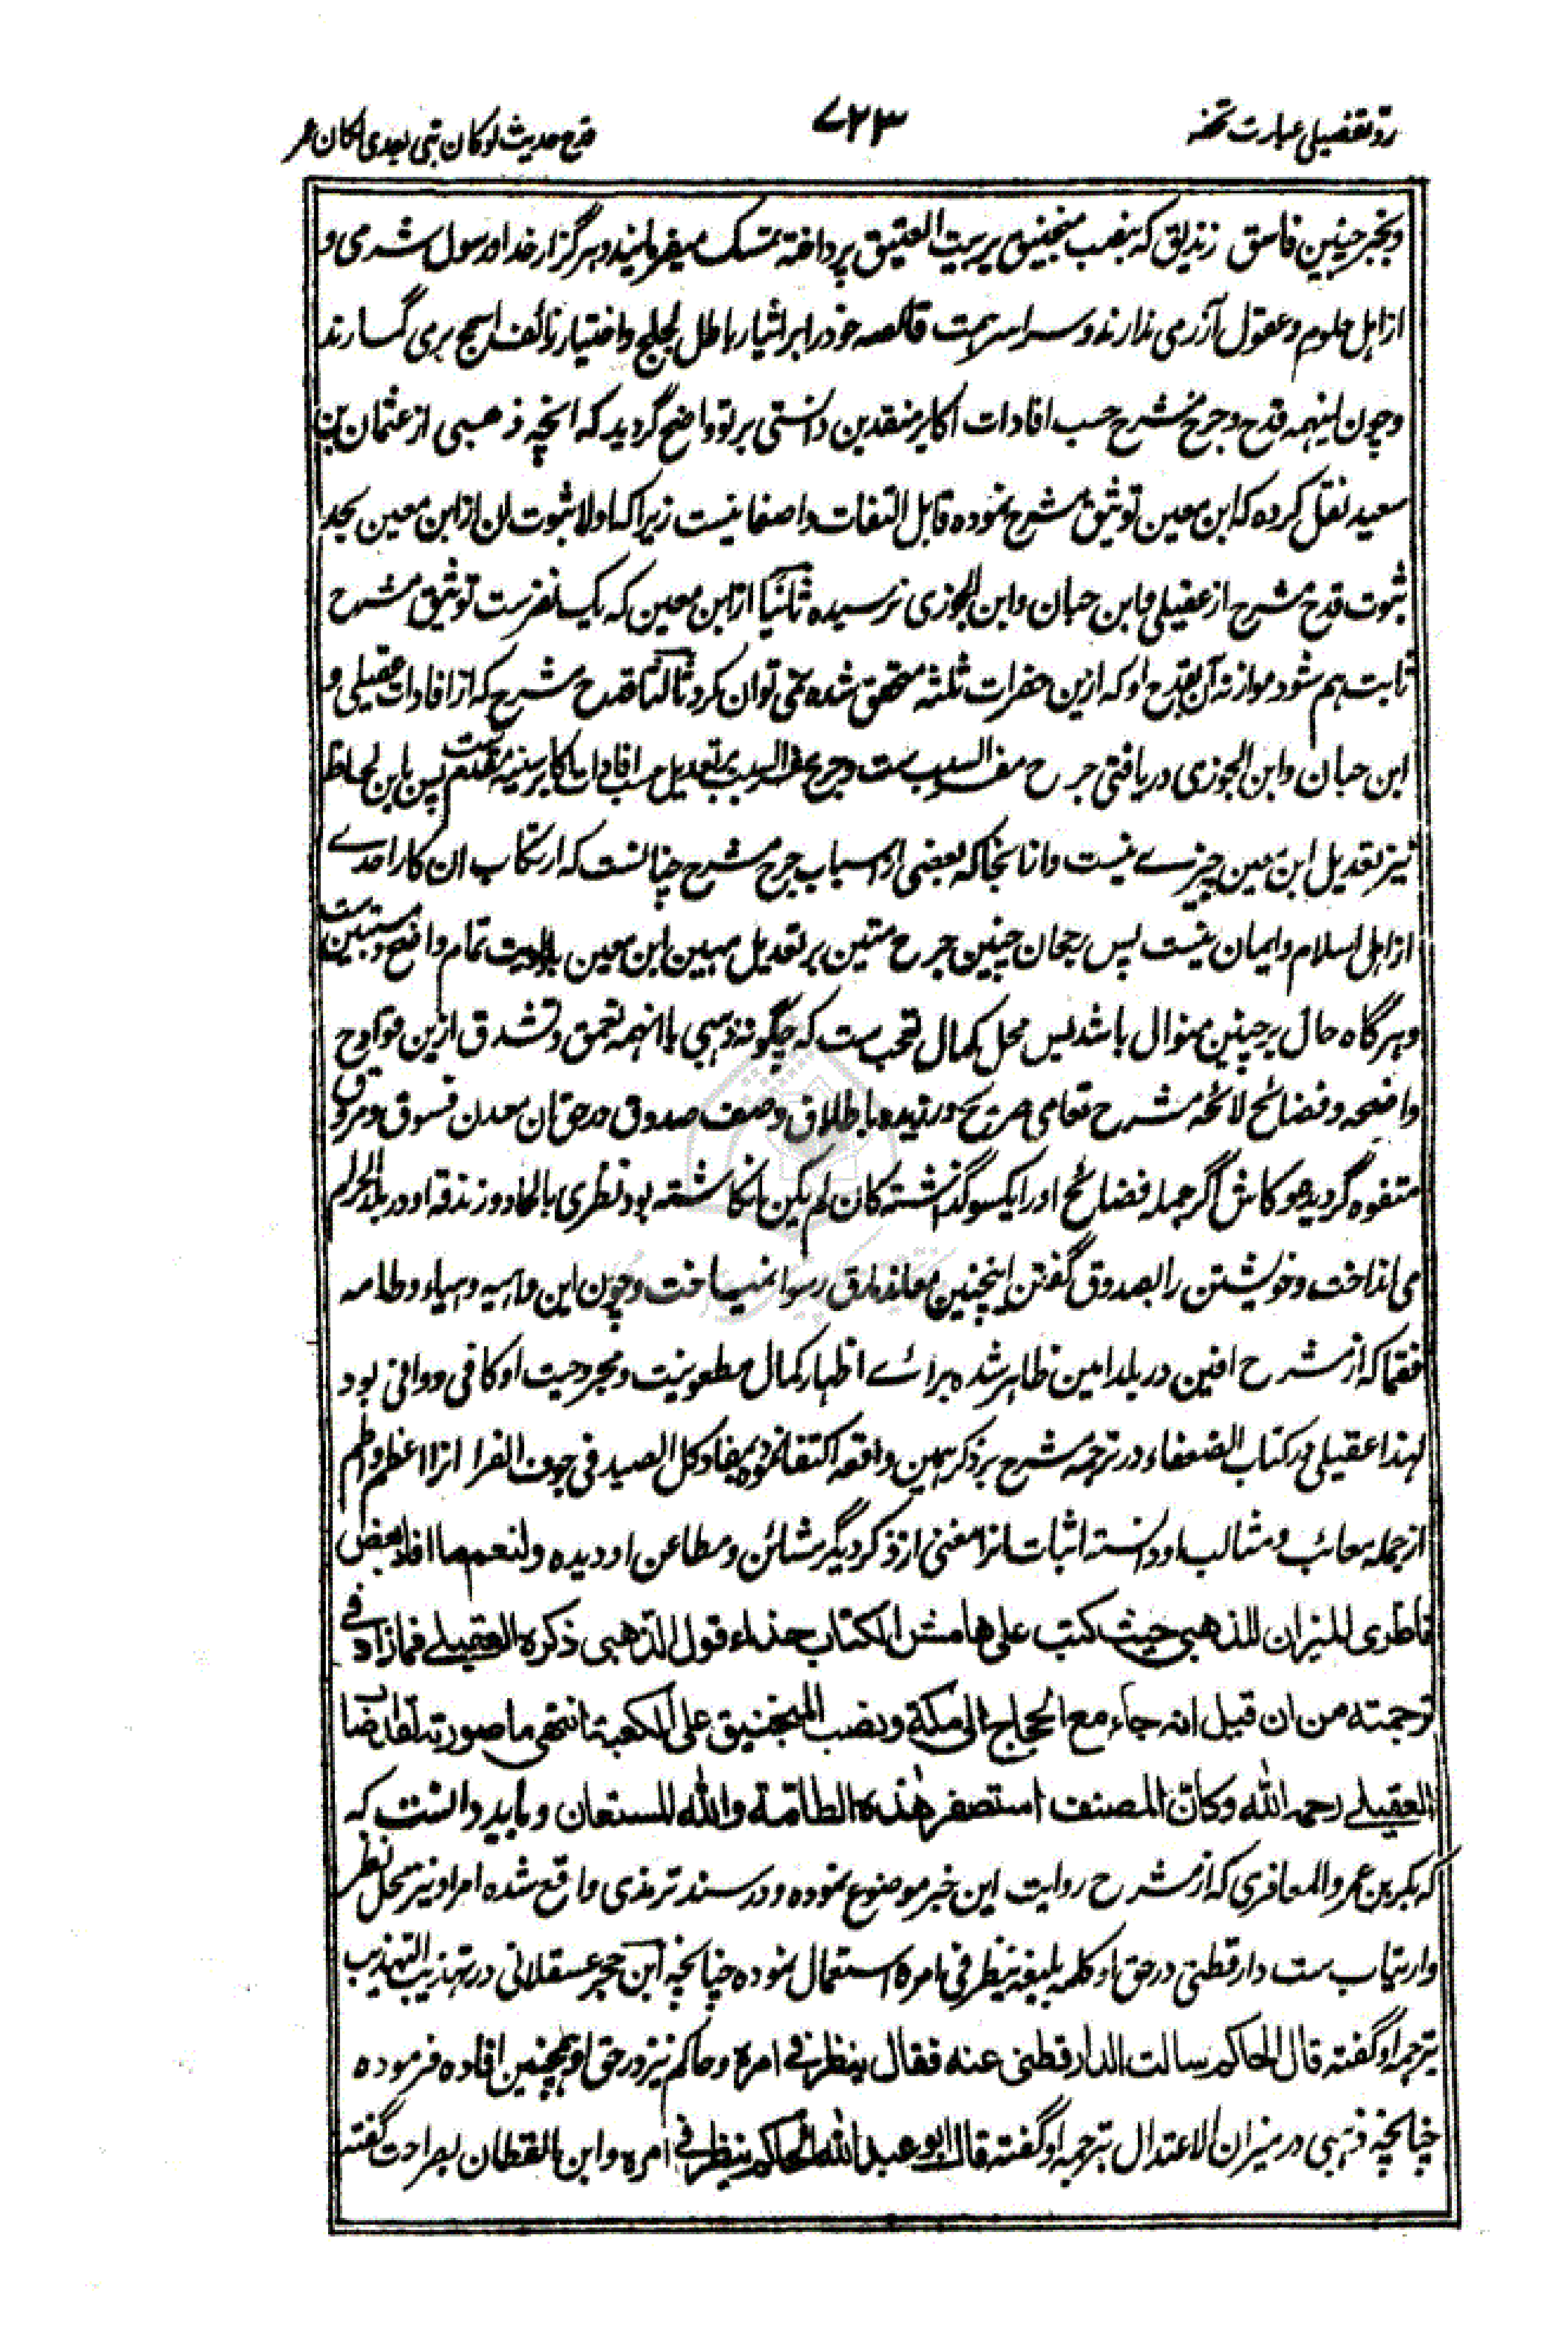 ردّ تفضیلی عبارت تحفه
۷۲۳
قدح حدیث لو کان نبی بعدی لکان عمر
و بخبر چنین فاسق زندیق که بنصب منجنیق بر بیت العتیق پرداخته تمسک میفرمایند و هرگز از خدا و رسول شرمی و
از اهل حلوم و عقول آزرمی ندارند و سراسر همت قالصه خود را بر ایثار باطل لجلج و اختیار زائف اسمج بر می گسارند
و چون اینهمه قدح و جرح مشرح حسب افادات اکابر منقدین دانستی بر تو واضح گردید که انچه ذهبی از عثمان بن
سعید نقل کرده که ابن معین توثیق مشرح نموده قابل التفات و اصغا نیست زیرا که اولا ثبوت ان از ابن معین بحد
ثبوت قدح مشرح از عقیلی و ابن حبان و ابن الجوزی نرسیده ثانیًا از ابن معین که یک نفرست توثیق مشرح
ثابت هم شود موازنه آن بقدح او که ازین حضرات ثلثه متحقق شده نمی توان کرد ثالثًا قدح مشرح که از افادات عقیلی و
ابن حبان و ابن الجوزی دریافتی جرح مفسر السبب ست و جرح مفسر السبب بر تعدیل حسب افادات اکابر سنیه مقدم ست پس باین لحاظ
نیز تعدیل ابن معین چیزے نیست و از انجا که بعضی از اسباب جرح مشرح چنانست که ارتکاب ان کار احدے
از اهل اسلام و ایمان نیست پس رجحان چنین جرح متین بر تعدیل مهین ابن معین باولویت تمام واضح و مستبین ست
و هر گاه حال بر چنین منوال باشد پس محل کمال تعجب ست که چگونه ذهبی با انهمه تعمق و تشدق ازین قوادح
واضحه و فضائح لائحه مشرح تعامی صریح ورزیده باطلاق وصف صدوق در حق ان معدن فسوق و مروق
متفوه گردید و کاش اگر جمله فضائح او را یکسو گذاشته کان لم یکن انکاشته بود نظری بالحاد و زندقه او در بلد الحرام
می انداخت و خویشتن را بصدوق گفتن اینچنین معاند مارق رسوا نمیساخت و چون این داهیه دهیاء و طامه
فقما که از مشرح افین در بلد امین ظاهر شده برائے اظهار کمال مطعونیت و مجروحیت او کافی و وافی بود
لهذا عقیلی در کتاب الضعفاء در ترجمه مشرح بر ذکر همین واقعه اکتفا نموده بمفاد کل الصید فی جوف الفرا انرا اعظم و اطم
از جمله معائب و مثالب او دانسته اثبات انرا مغنی از ذکر دیگر مشائن و مطاعن او دیده و لنعم ما افاد بعض
ناظری المیزان للذهبی حیث کتب علی هامش الکتاب حذاء قول الذهبی ذکره العقیلے فما زاد فی
ترجمته من ان قیل انه جاء مع الحجاج الی مکة و نصب المنجنیق علی الکعبة انتهی ما صورته لقد
العقیلے رحمه الله و کأنّ المصنف استصغر هٰذه الطامّة والله المستعان و باید دانست که
که بکر بن عمرو المعافری که از مشرح روایت این خبر موضوع نموده و در سند ترمذی واقع شده امر او نیز محل نظر
و ارتیاب ست دارقطنی در حق او کلمه بلیغه ینظر فی امره استعمال نموده چنانچه ابن حجر عسقلانی در تهذیب التهذیب
بترجمه او گفته قال الحاکم سالت الدارقطنی عنه فقال ینظر فے امره و حاکم نیز در حق او همچنین افاده فرموده
چنانچه ذهبی در میزان الاعتدال بترجمه او گفته قال ابو عبد الله الحاکم ینظر فی امره و ابن القطان بصراحت گفته